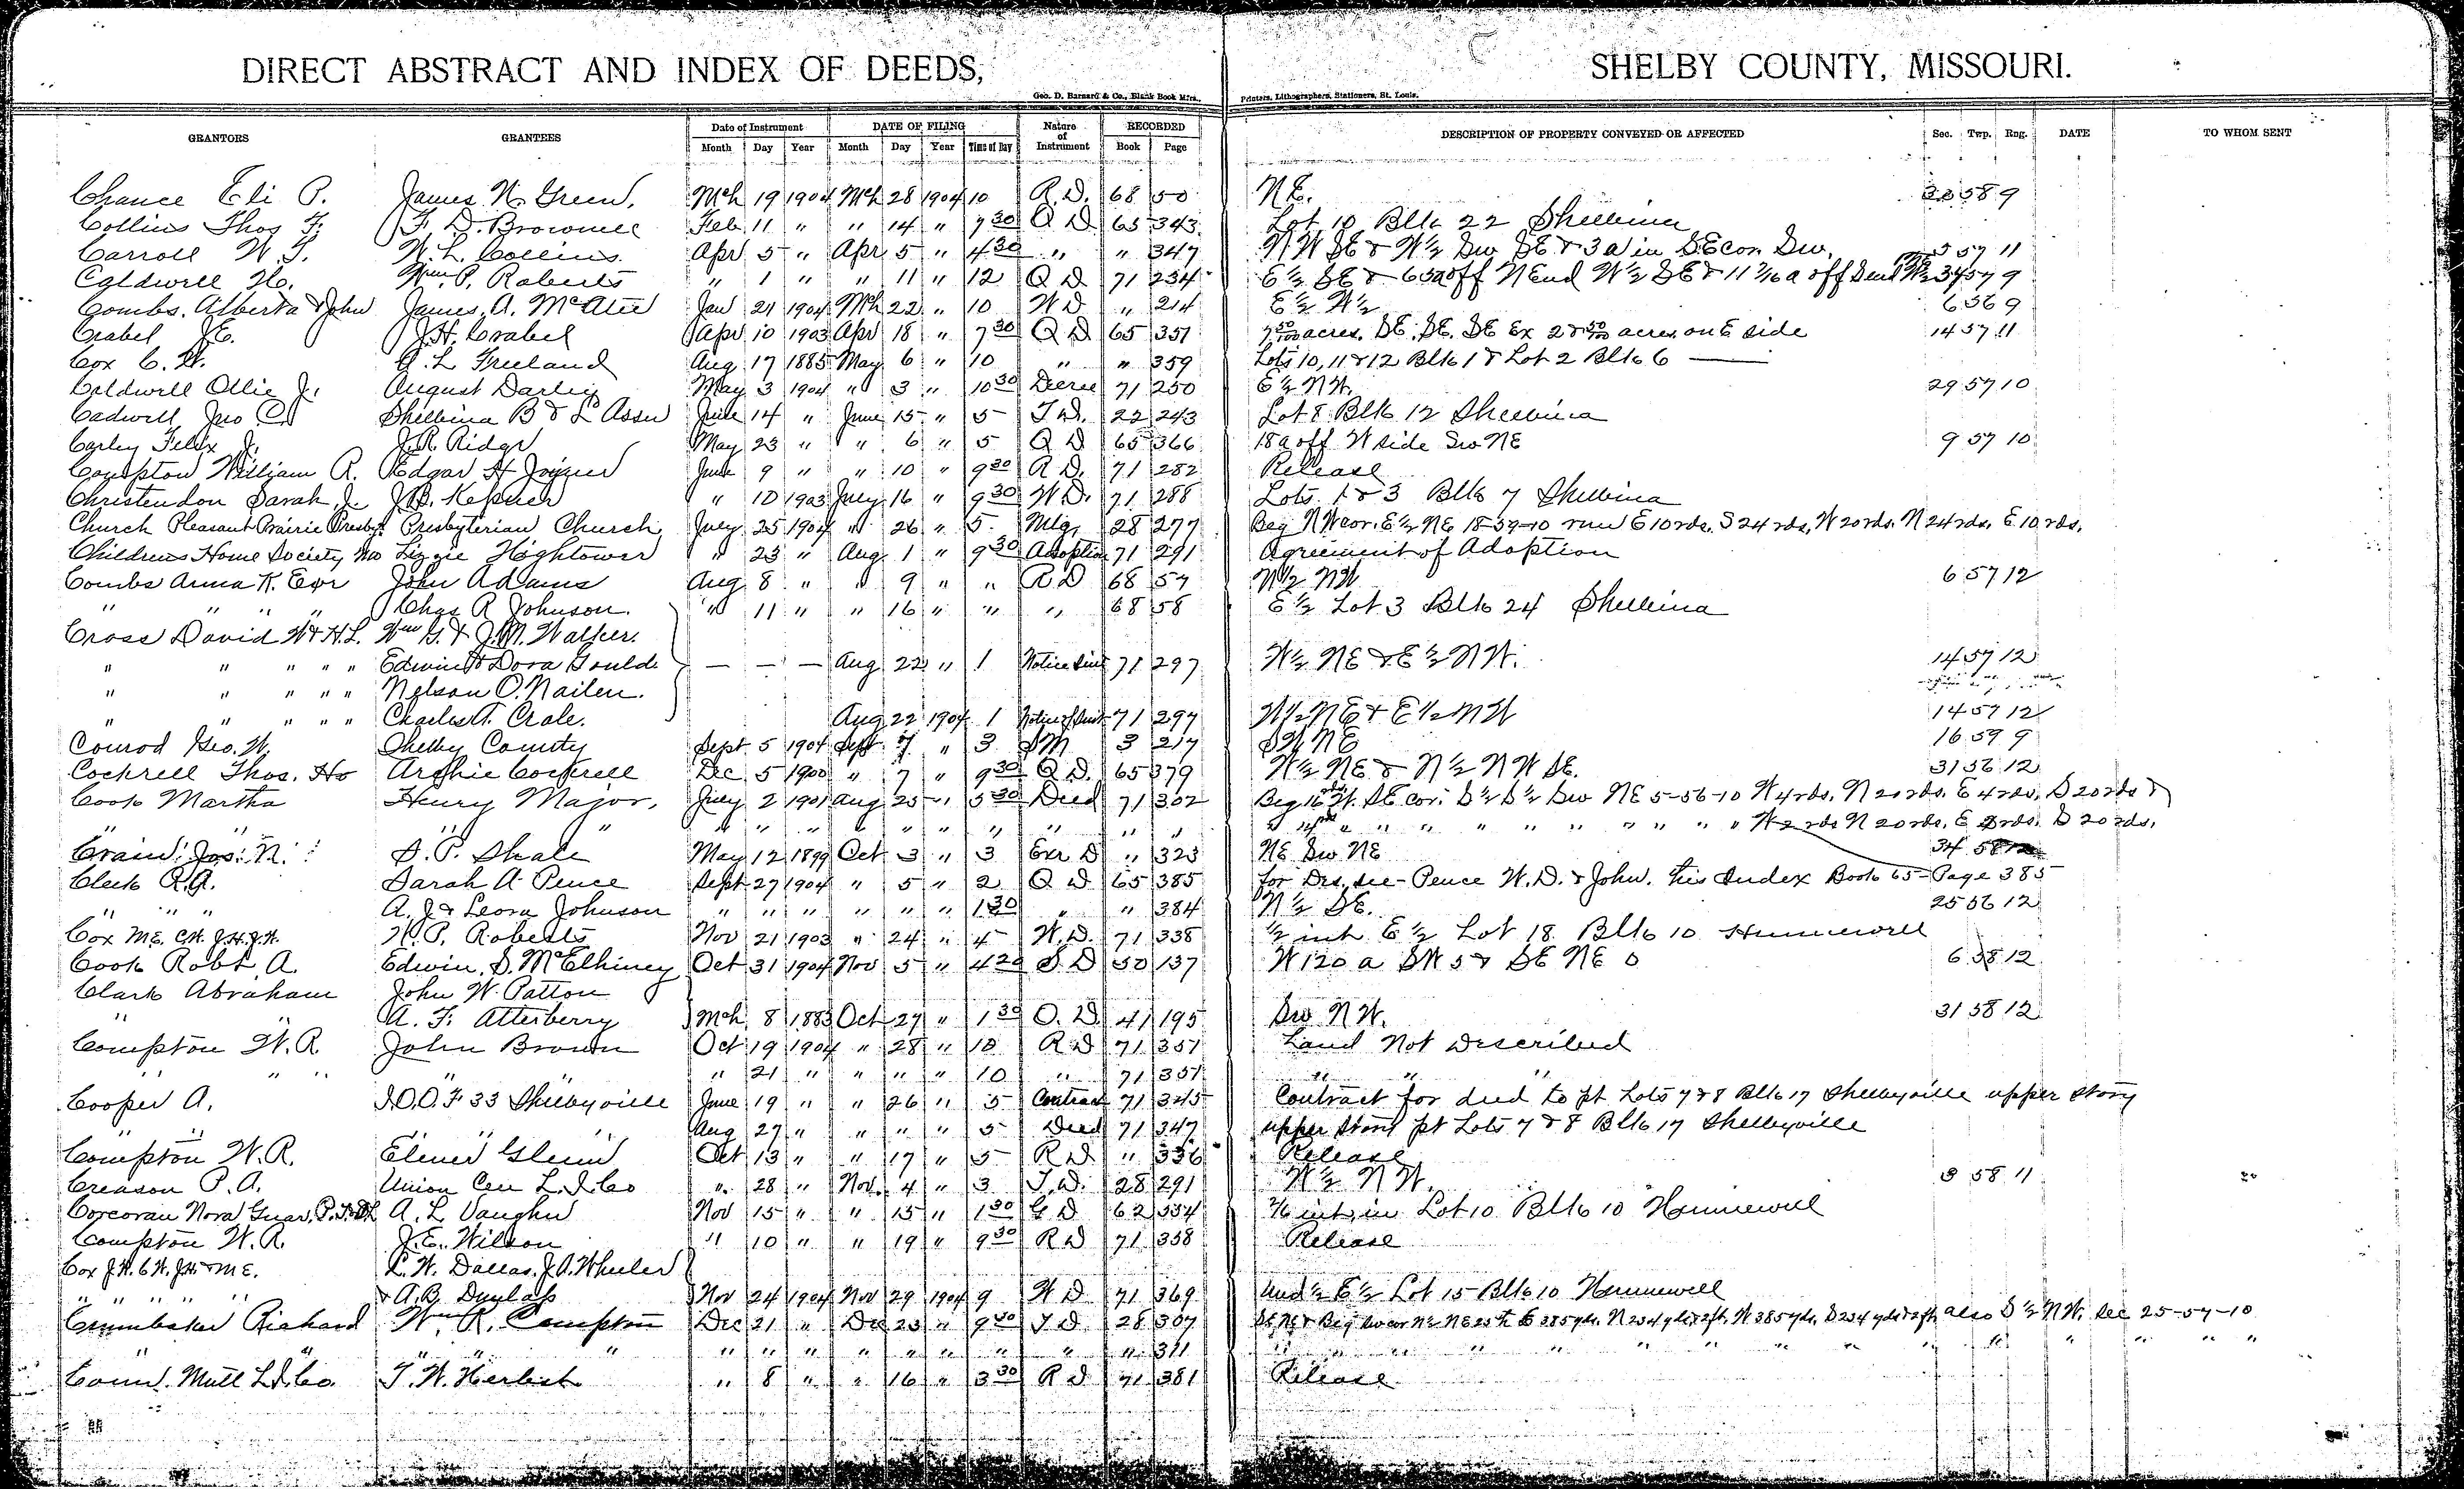 DIRECT ABSTRACT AND INDEX OF DEEDS, SHELBY COUNTY, MISSOURI.
Geo. D. Barnard & Co., Blank Book Mfrs., Printers, Lithographers, Stationers, St. Louis.
GRANTORS GRANTEES Date of Instrument DATE OF FILING Nature of Instrument RECORDED DESCRIPTION OF PROPERTY CONVEYED OR AFFECTED Sec. Twp. Rng. DATE TO WHOM SENT
Month Day Year Month Day Year Time of Day Book Page
Chance Eli P. James N. Green. Mch 19 1904 Mch 28 1904 10 R.D. 68 50 N.E. 58 9
Collins Thos F. F. D. Brownell Feb 11 " " 14 " 7 30 Q D 65 343 Lot 10 Blk 22 Shelbina
Carroll W. T. W. L. Collins. Apr 5 " Apr 5 " 4 30 " " 347 NW SE & W½ Sw SE & 3a in SE cor Sw. 5 57 11
Caldwell H. Wm. P. Roberts " 1 " " 11 " 12 Q D 71 234 E½ SE & 65a off N end W½ SE & 11 a off S end 57 9
Combs. Alberta & John James. A. McAtee Jan 21 1904 Mch 22 " 10 W D " 214 E½ W½ 6 56 9
Crabel J.E. J.H. Crabel Apr 10 1903 Apr 18 " 7 30 Q D 65 351 acres. SE. SE. SE Ex acres on E side 14 57 11
Cox C. H. A. L. Freeland Aug 17 1885 May 6 " 10 " " 359 Lots 10, 11 & 12 Blk 1 & Lot 2 Blk 6 —
Caldwell Ollie J. August Darlig May 3 1904 " 3 " 10 30 Decree 71 250 E½ NW. 29 57 10
Cadwell, Jno C. Shelbina B & L Assn June 14 " June 15 " 5 T D. 22 243 Lot 8 Blk 12 Shelbina
Carley Felix J. J.R. Ridge May 23 " " 6 " 5 Q D 65 366 18a off W side Sw NE 9 57 10
Compton William R. Edgar H Joyner June 9 " " 10 " 9 30 R D. 71 282 Release
Christendon Sarah J. J.B. Kepner " 10 1903 July 16 " 9 30 W D. 71 288 Lots 1 & 3 Blk 7 Shelbina
Church Pleasant Prairie Presbyt. Presbyterian Church July 25 1904 " 26 " 5 Mtg. 28 277 Beg NW cor. E½ NE 18-59-10 run E 10 rds. S 24 rds, W 20 rds. N 24 rds. E 10 rds.
Childrens Home Society Mo Lizzie Hightower " 23 " Aug 1 " 9 30 Adoption 71 291 Agreement of Adoption
Combs Anna K. Exr John Adams Aug 8 " " 9 " " R D 68 57 N½ NW 6 57 12
" " " " Chas R Johnson. " 11 " " 16 " " " 68 58 E½ Lot 3 Blk 24 Shelbina
Cross David W & H.L. Wm G. & J.M. Walker.
" " " " " Edwin & Dora Gould — — — Aug 22 " 1 Notice Suit 71 297 W½ NE & E½ NW. 14 57 12
" " " " " Nelson O. Nailen.
" " " " " Charles T. Crale. Aug 22 1904 1 Notice of Suit 71 297 W½ NE & E½ NW 14 57 12
Conrod Geo. W. Shelby County Sept 5 1904 Sept 7 " 3 S M 3 217 SW NE 16 59 9
Cockrell Thos. Ho Archie Cockrell Dec 5 1900 " 7 " 9 30 Q D. 65 379 W½ NE & N½ NW SE. 31 56 12
Cook Martha Henry Major, July 2 1901 Aug 25 " 5 30 Deed 71 302 Beg 16 W. SE cor. S½ S½ Sw NE 5-56-10 W 4 rds. N 20 rds. E 4 rds. S 20 rds &
" " " " " " " " " " " " " " " " " " " " " " " W 2 rds N 20 rds. E 2 rds. S 20 rds.
Crain Jos. N. S. P. Shale May 12 1899 Oct 3 " 3 Exr D " 323 NE Sw NE 34 58
Cleek R.A. Sarah A Pence Sept 27 1904 " 5 " 2 Q D 65 385 for Des. see Pence W. D. & John. this Index Book 65 Page 385
" " " A. J & Leora Johnson " " " " " " 1 30 " " 384 N½ SE. 25 56 12
Cox M.E. C.H. J.H. J.W. W. P. Roberts Nov 21 1903 " 24 " 4 W. D. 71 338 ½ int E½ Lot 18 Blk 10 Hunnewell
Cook Robt. A. Edwin. S. McElhiney Oct 31 1904 Nov 5 " 4 20 S D 50 137 W 120 a SW 5 & SE NE 6 58 12
Clark Abraham John W. Patton
" " A. F. Atterberry Mch. 8 1883 Oct 27 " 1 30 O. D 41 195 Sw NW. 31 58 12
Compton W. R John Brown Oct 19 1904 " 28 " 10 R D 71 351 Land Not Described
" " " " " " 21 " " " " 10 " 71 351 " " "
Cooper A. I.O.O.F 33 Shelbyville June 19 " " 26 " 5 Contract 71 345 Contract for deed to pt Lots 7 & 8 Blk 17 Shelbyville upper story
" " " " " Aug 27 " " " " 5 Deed 71 347 upper story pt Lots 7 & 8 Blk 17 Shelbyville
Compton W. R. Elmer Glenn Oct 13 " " 17 " 5 R D " 336 Release
Creason P. A. Union Cen L. I. Co " 28 " Nov. 4 " 3 T. D. 28 291 W½ NW. 3 58 11
Corcoran Nora Guar. A. L Vaughn Nov 15 " " 15 " 1 30 G D 62 554 int. in Lot 10 Blk 10 Hunnewell
Compton W. R. J. E. Wilson " 10 " " 19 " 9 30 R D 71 358 Release
Cox J.W. C.H. J.H. & M.E. L. W. Dallas. J. A. Wheeler
" " " " " & A. B. Dunlap Nov 24 1904 Nov 29 1904 9 W D 71 369 Und ½ E½ Lot 15 Blk 10 Hunnewell
Crumbaker Richard Wm. R. Compton Dec 21 " Dec 23 " 9 30 T D 28 307 SE NE & Beg Sw cor NE NE 25th E 385 yds. N 234 yds & 2 ft. W 385 yds. S 234 yds & 2 ft. also S½ NW. Sec 25-57-10
" " " " " " " " " " " " 311 " " " " " " " " "
Conn. Mutl L.I. Co. T. W. Herbst " 8 " " 16 " 3 30 R D 71 381 Release